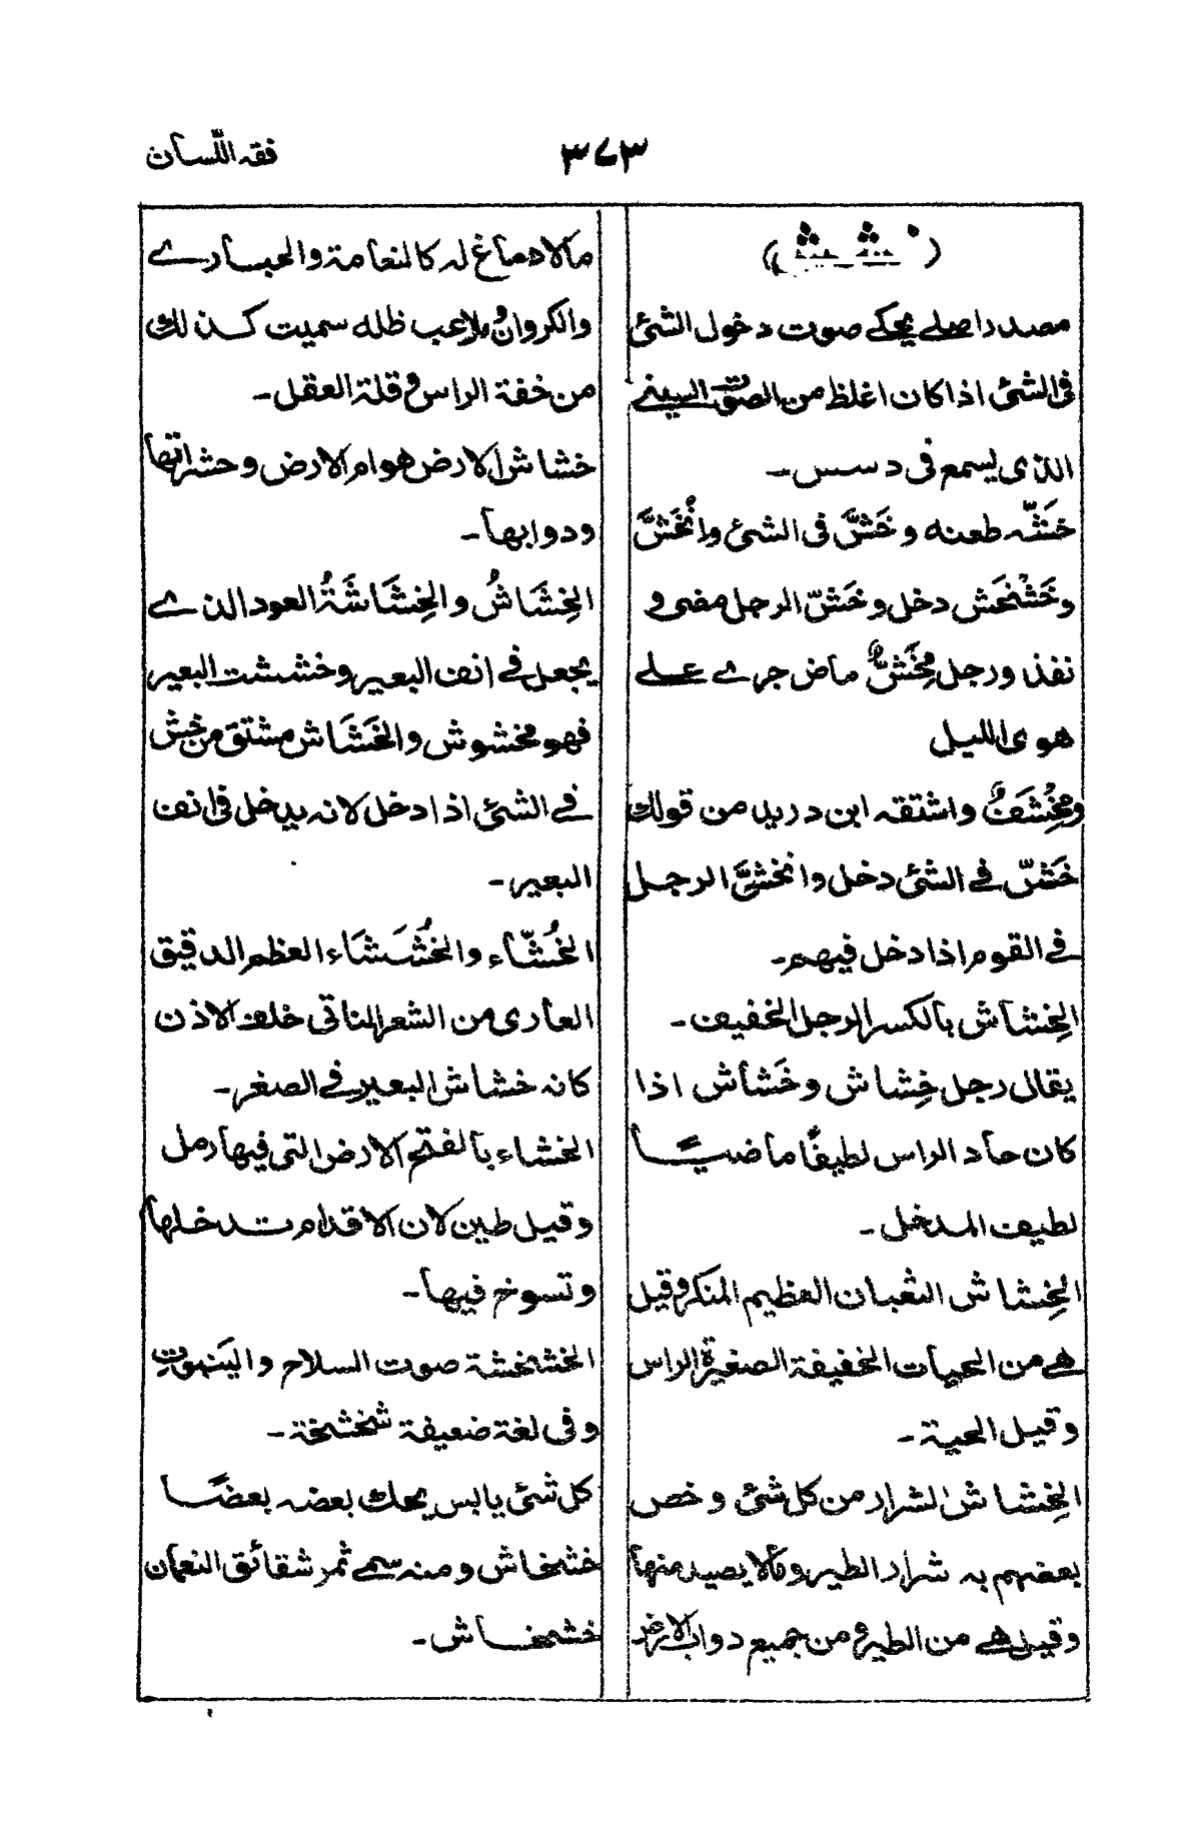 فقه اللّسان
٣٧٣
مصدر اصلے يحكے صوت دخول الشئ
فى الشئ اذا كان اغلظ من الصوت السينے
الذى يسمع فى دسس۔
خَشّه طعنه وخَشَّ فى الشئ وانْخَشَّ
وخَشْخَش دخل وخَشّ الرجل مضى و
نفذ ورجل مِخَشٌّ ماض جرے علے
هوى الليل
ومِخْشَفٌ واشتقه ابن دريد من قولك
خَشّ فے الشئ دخل وانخشَّ الرجل
فے القوم اذا دخل فيهم۔
الخِشاش بالكسر الرجل الخفيف۔
يقال رجل خِشاش وخَشاش اذا
كان حاد الراس لطيفًا ماضيًا
لطيف المدخل۔
الخِشاش الثعبان العظيم المنكر وقيل
هے من الحيات الخفيفة الصغيرة الراس
وقيل الحية۔
الخِشاش الشرار من كل شئ وخص
بعضهم به شرار الطير ومالا يصيد منها
وقيل هے من الطير ومن جميع دواب الارض
مالا دماغ له كالنعامة والحبارے
والكروان وملاعب ظله سميت كذلك
من خفة الراس وقلة العقل۔
خشاش الارض هوام الارض وحشراتها
ودوابها۔
الخِشَاشُ والخِشَاشَةُ العود الذے
يجعل فے انف البعير وخششت البعير
فهو مخشوش والخَشَاش مشتق من خش
فے الشئ اذا دخل لانه يدخل فى انف
البعير۔
الخُشّاء والخُشَشَاء العظم الدقيق
العارى من الشعر الناتى خلف الاذن
كانه خشاش البعير فے الصغر۔
الخشاء بالفتح الارض التى فيها رمل
وقيل طين لان الاقدام تدخلها
وتسوخ فيها۔
الخشخشة صوت السلاح والينبوت
وفى لغة ضعيفة شخشخة۔
كل شئ يابس يحك بعضه بعضًا
خشخاش ومنه سمے ثمر شقائق النعمان
خشخاش۔